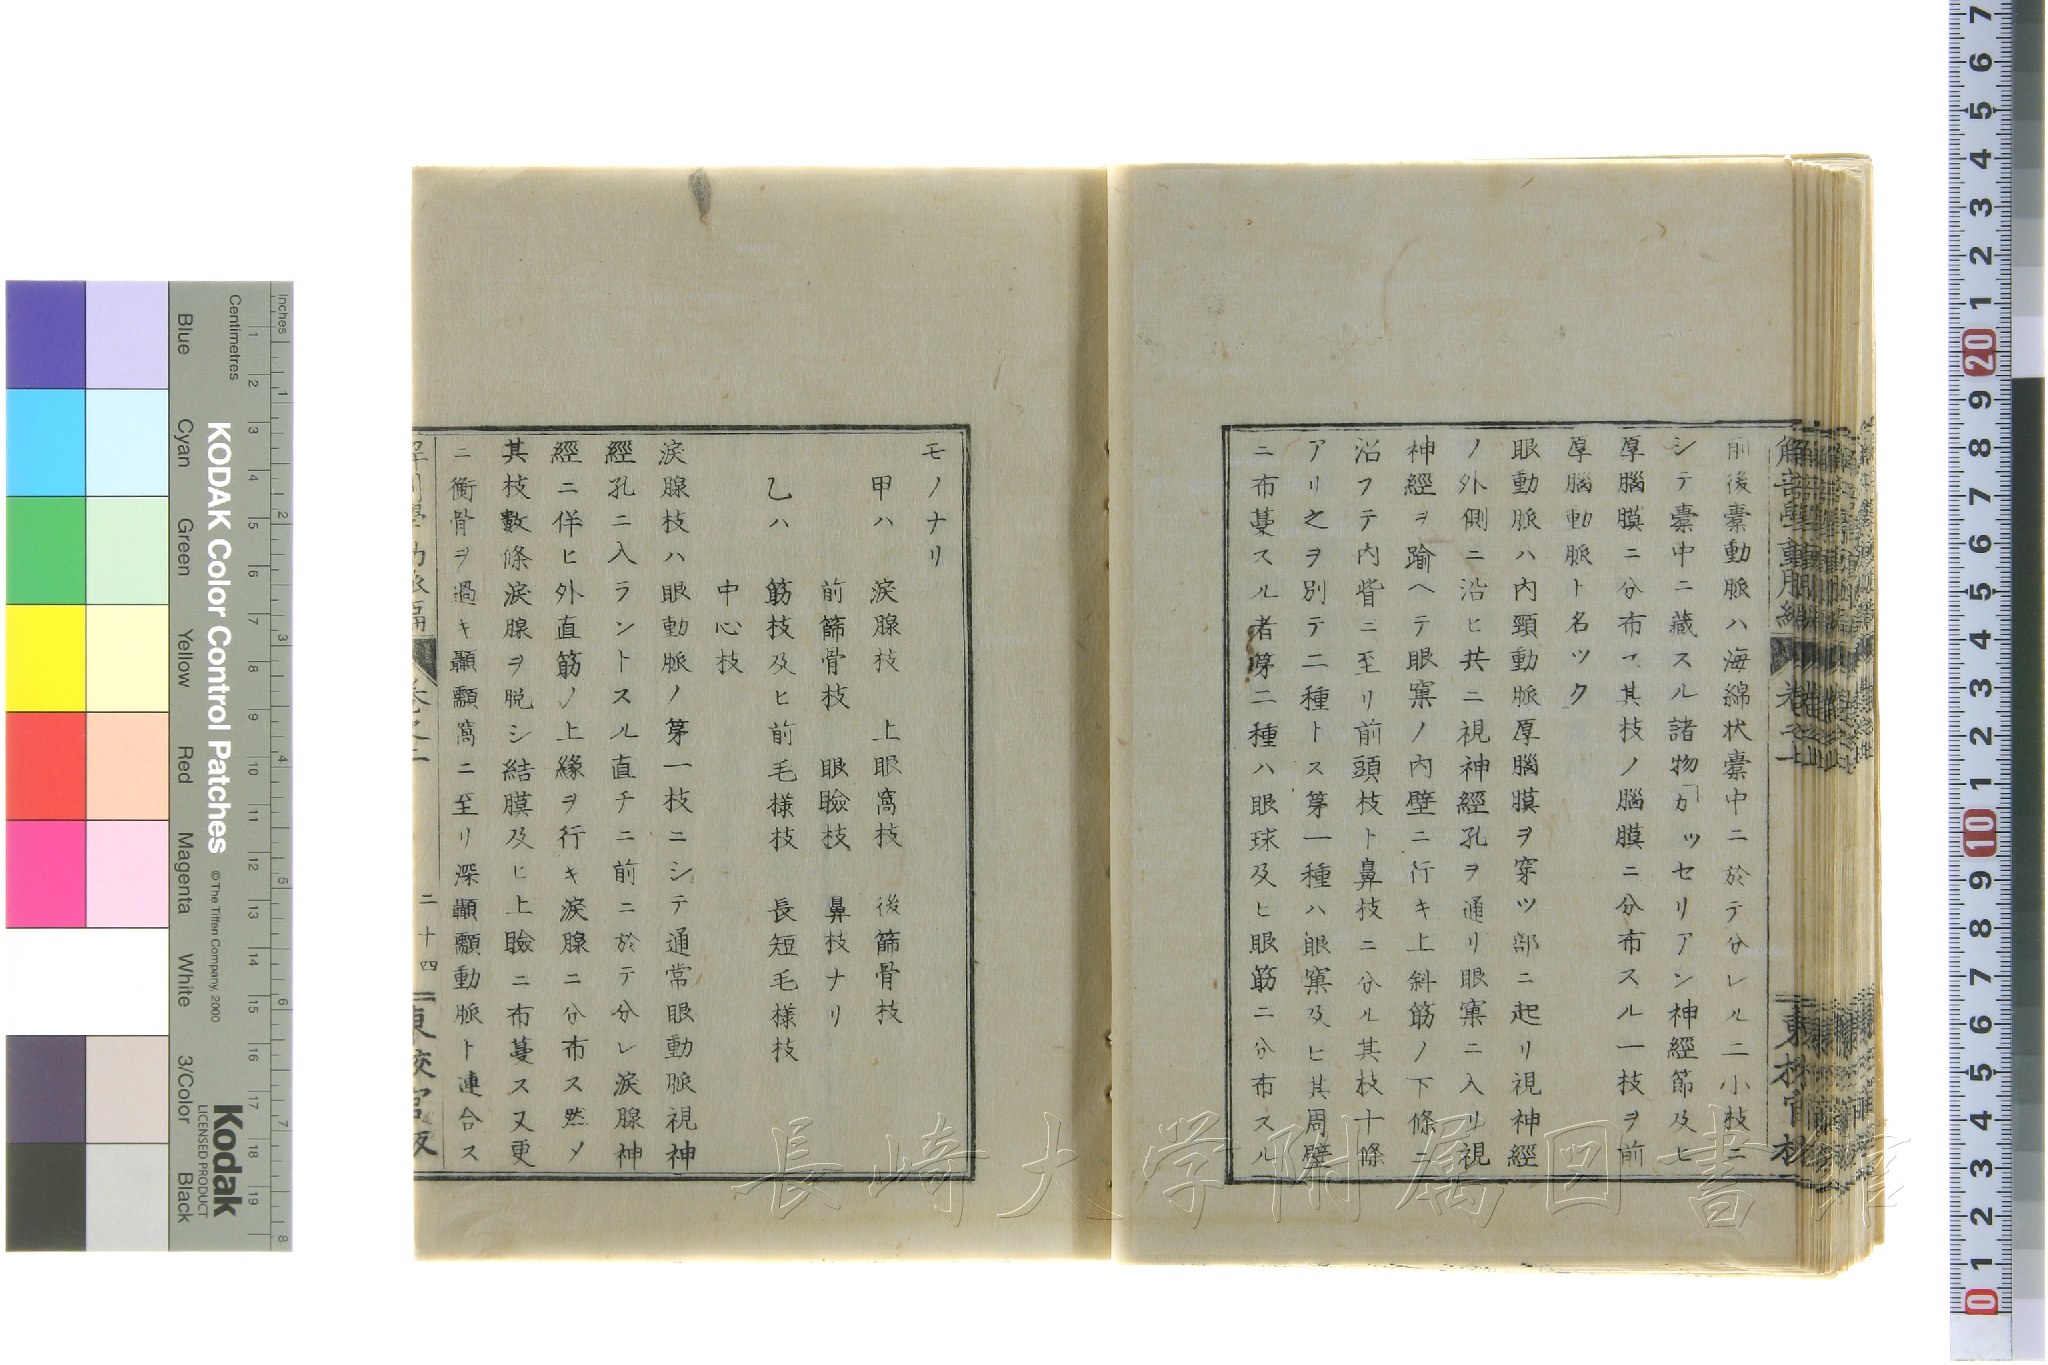 前後嚢動脈ハ海綿状嚢中ニ於テ分レル二小枝ニ
シテ嚢中ニ藏スル諸物「カッセリアン神經節及ヒ
厚腦膜ニ分布ス其枝ノ腦膜ニ分布スル一枝ヲ前
厚腦動脈ト名ツク
眼動脈ハ内頸動脈厚腦膜ヲ穿ツ部ニ起リ視神經
ノ外側ニ沿ヒ共ニ視神經孔ヲ通リ眼窠ニ入リ視
神經ヲ踰ヘテ眼窠ノ内壁ニ行キ上斜筋ノ下條ニ
沿フテ内眥ニ至リ前頭枝ト鼻枝ニ分ル其枝十條
アリ之ヲ別テ二種トス第一種ハ眼窠及ヒ其周壁
ニ布蔓スル者第二種ハ眼球及ヒ眼筋ニ分布スル
モノナリ
甲ハ 淚腺枝 上眼窩枝 後篩骨枝
前篩骨枝 眼瞼枝 鼻枝ナリ
乙ハ 筋枝及ヒ前毛様枝 長短毛様枝
中心枝
淚腺枝ハ眼動脈ノ第一枝ニシテ通常眼動脈視神
經孔ニ入ラントスル直チニ前ニ於テ分レ淚腺神
經ニ伴ヒ外直筋ノ上緣ヲ行キ淚腺ニ分布ス然メ
其枝數條淚腺ヲ脱シ結膜及ヒ上瞼ニ布蔓ス又更
ニ衡骨ヲ過キ顳顬窩ニ至リ深顳顬動脈ト連合ス
二十四
長崎大学附属図書館
KODAK Color Control Patches
© The Tiffen Company, 2000
Kodak
LICENSED PRODUCT
Inches
Centimetres
Blue
Cyan
Green
Yellow
Red
Magenta
White
3/Color
Black